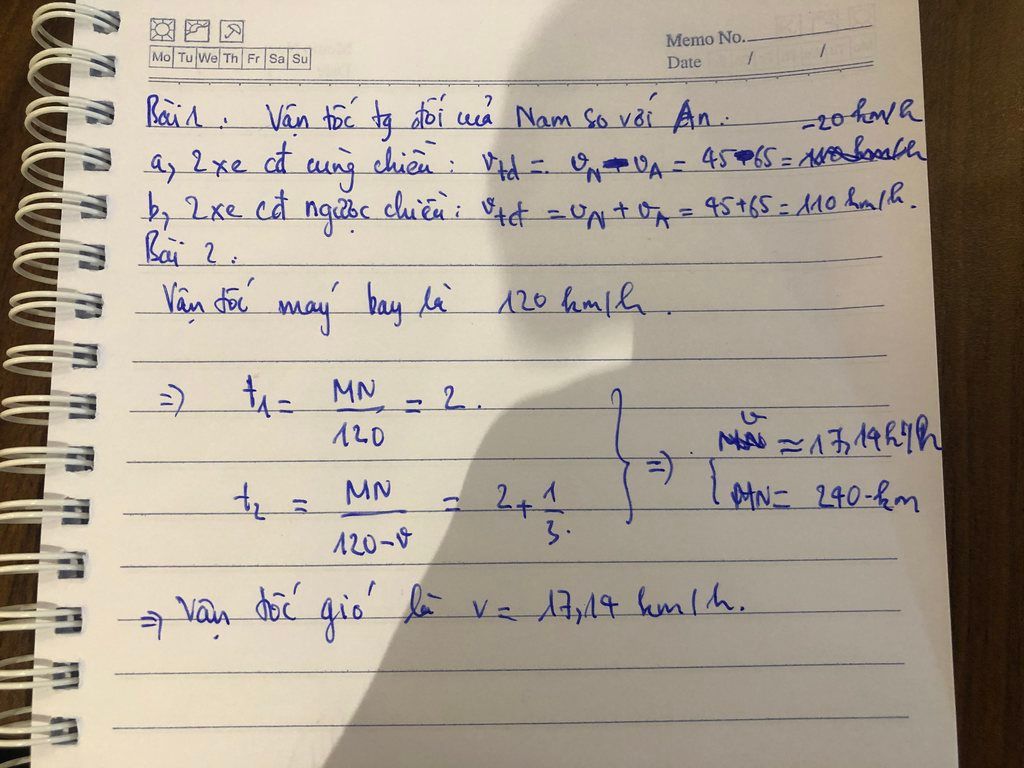 Mo Tu We Th Fr Sa Su
Memo No.
Date / /
Bài 1 : Vận tốc tg đối của Nam so với An.
-20 km/h
a, 2 xe cđ cùng chiều : vtđ = vN - vA = 45-65 = 110 km/h
b, 2 xe cđ ngược chiều : vtđ = vN + vA = 45+65 = 110 km/h.
Bài 2 :
Vận tốc máy bay là 120 km/h.
=> t1 = MN/120 = 2.
t2 = MN/120-v = 2+1/3.
=> v ≈ 17,14 km/h
MN = 240 km
=> Vận tốc gió là v = 17,14 km/h.